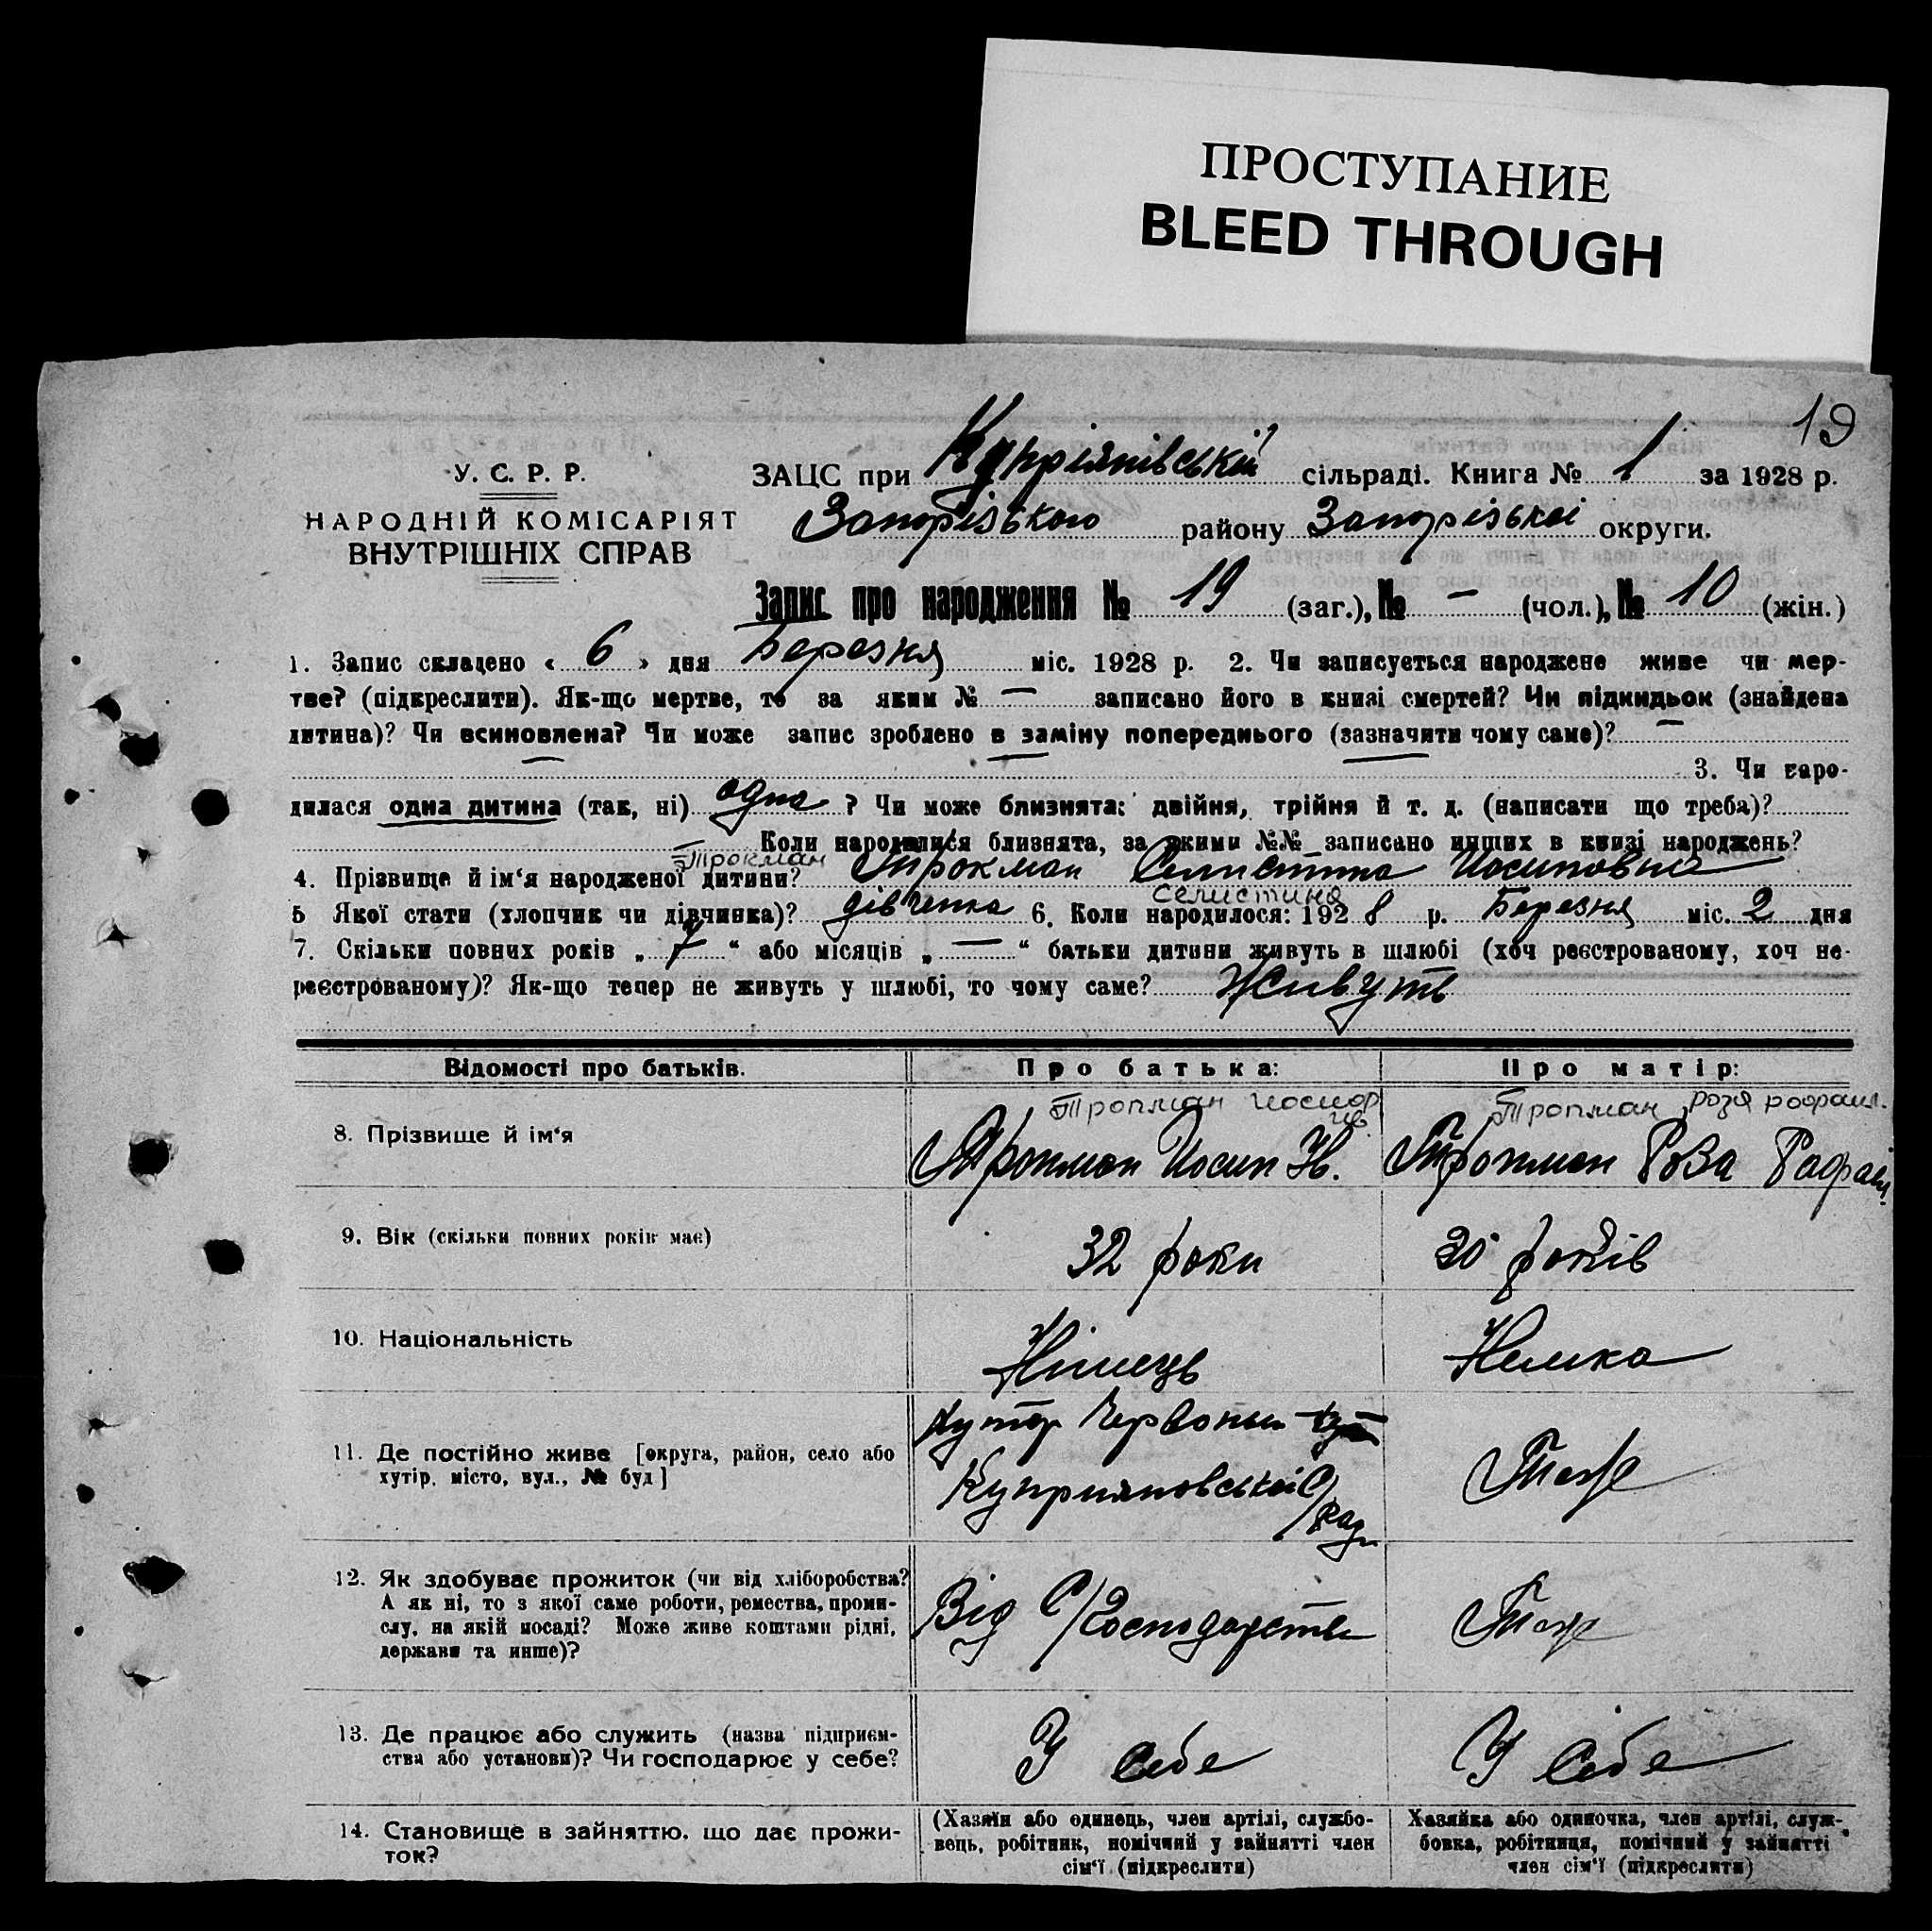 ПРОСТУПАНИЕ
BLEED THROUGH
19
У. С. Р. Р.
НАРОДНІЙ КОМІСАРІЯТ
ВНУТРІШНІХ СПРАВ
ЗАЦС при Купріянівській сільраді. Книга № 1 за 1928 р.
Запорізького району Запорізької округи.
Запис про народження № 19 (заг.), № – (чол.), № 10 (жін.)
1. Запис складено « 6 » дня Березня міс. 1928 р. 2. Чи записується народжене живе чи мер-
тве? (підкреслити). Як-що мертве, то за яким № — записано його в книзі смертей? Чи підкидьок (знайдена
дитина)? Чи всиновлена? Чи може запис зроблено в заміну попереднього (зазначити чому саме)? —
3. Чи наро-
дилася одна дитина (так, ні) одна ? Чи може близнята: двійня, трійня й т. д. (написати що треба)?
— Коли народилися близнята, за якими №№ записано инших в книзі народжень?
Трокман
4. Прізвище й ім'я народженої дитини? Трокман Селистина Иосиповна
Селистина
5 Якої стати (хлопчик чи дівчинка)? дівчинка 6. Коли народилося: 192 8 р. Березня міс. 2 дня
7. Скільки повних років „ 7 “ або місяців „ — “ батьки дитини живуть в шлюбі (хоч реєстрованому, хоч не-
реєстрованому)? Як-що тепер не живуть у шлюбі, то чому саме? Живуть
Відомості про батьків.
Про батька:
Про матір:
8. Прізвище й ім'я
Тропман Иосиф
Ив.
Тропман Иосип
Тропман Розя Рафаил.
Тропман Роза Рафаіл
9. Вік (скільки повних років має)
32 роки
30 років
10. Національність
Німець
Немка
11. Де постійно живе [округа, район, село або
хутір, місто, вул., № буд]
Хутор Червоный
Куприяновської С/Рады
Тоже
12. Як здобуває прожиток (чи від хліборобства?
А як ні, то з якої саме роботи, ремества, проми-
слу, на якій посаді? Може живе коштами рідні,
держави та инше)?
Від С/Господарства
Тоже
13. Де працює або служить (назва підприєм-
ства або установи)? Чи господарює у себе?
У себе
У себе
14. Становище в зайняттю, що дає прожи-
ток?
(Хазяїн або одинець, член артілі, службо-
вець, робітник, помічний у зайнятті член
сім'ї (підкреслити)
Хазяйка або одиночка, член артілі, служ-
бовка, робітниця, помічний у зайнятті
член сім'ї (підкреслити)